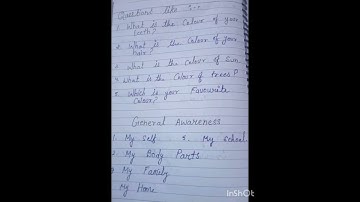 Questions like :-
1. What is the Colour of your
teeth?
2. What is the Colour of your
hair?
3. What is the Colour of Sun.
4. What is the Colour of trees?
5. Which is your Favourite
Colour?
General Awareness
1. My self 5. My school
2. My Body Parts
3. My Family
My Home
InShOt